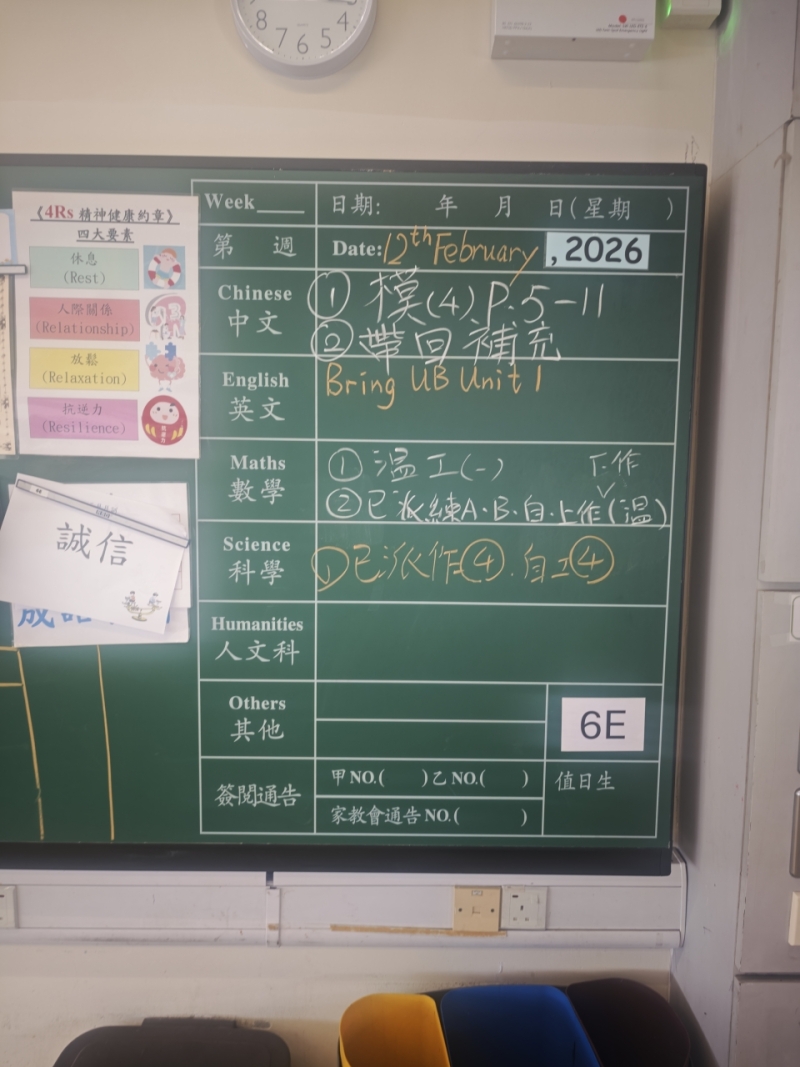 8 7 6 5 4
《4Rs 精神健康約章》
四大要素
休息
(Rest)
人際關係
(Relationship)
放鬆
(Relaxation)
抗逆力
(Resilience)
誠信
Week____ 日期: 年 月 日(星期 )
第 週 Date: 12th February, 2026
Chinese
中文
① 模(4) P.5-11
② 帶回補充
English
英文
Bring UB Unit 1
Maths
數學
① 溫工(一)
下作
② 已派練A.B.自.上作(溫)
Science
科學
① 已派作④.自工④
Humanities
人文科
Others
其他
6E
簽閱通告
甲NO.( )乙NO.( )
值日生
家教會通告NO.( )